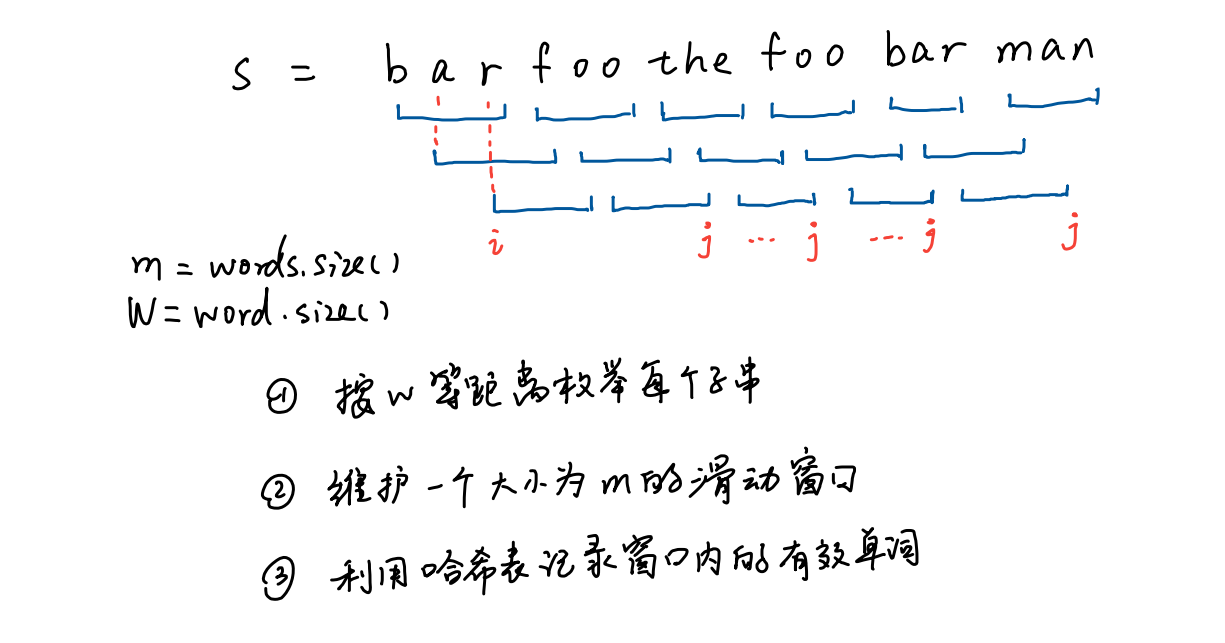 s = bar foo the foo bar man
i j ... j ... j j
m = words.size()
W = word.size()
① 按w等距离枚举每个子串
② 维护一个大小为m的滑动窗口
③ 利用哈希表记录窗口内的有效单词